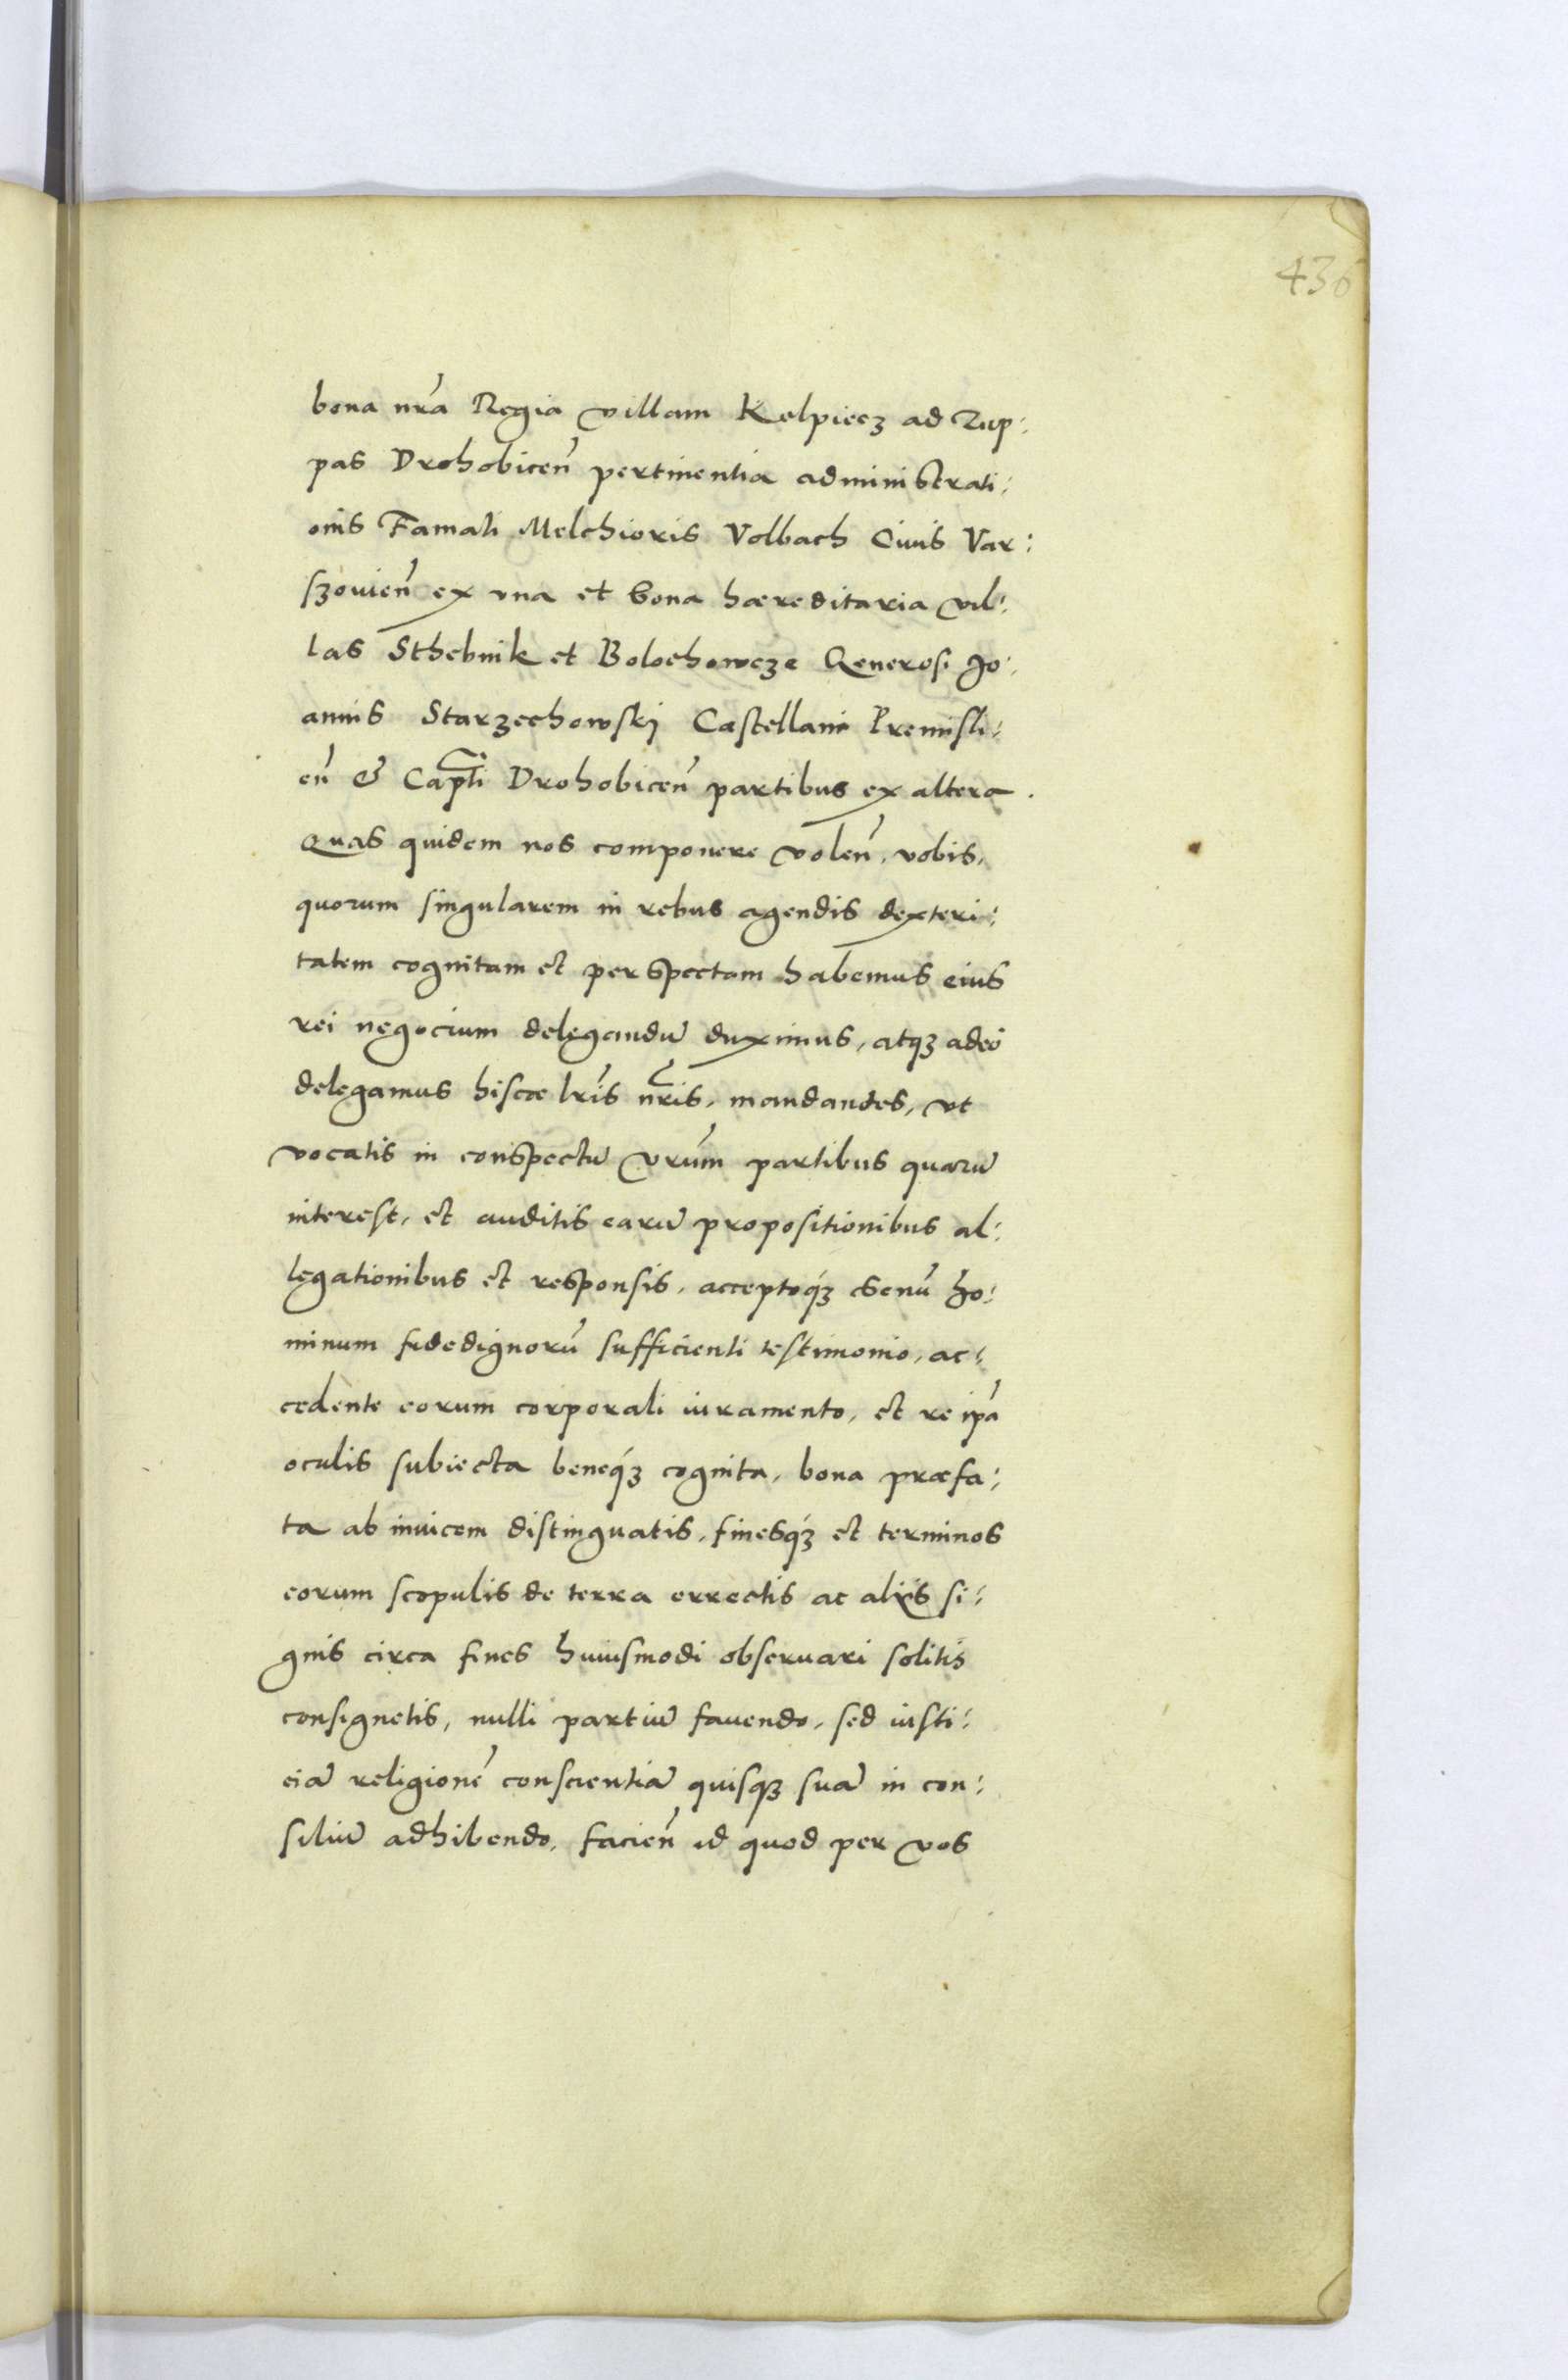 436
bona nrã Regia villam Kolpiecz ad Zup:
pas Drohobiceñ pertinentia administrati:
onis Famati Melchioris Volbach Ciuis Var:
szouieñ ex vna et bona hæreditaria vil:
las Sthebnik et Bolochowcze Generosi Jo:
annis Starzechowskj Castellani Premisli:
eñ & Capti Drohobiceñ partibus ex altera.
Quas quidem nos componere voleñ, vobis,
quorum singularem in rebus agendis dexteri:
tatem cognitam et perspectam habemus eius
rei negocium delegandũ duximus, atqʒ adeò
delegamus hisce lrĩs nrĩs, mandantes, vt
vocatis in conspectũ vrũm partibus quarũ
interest, et auditis earũ propositionibus al:
legationibus et responsis, acceptoqʒ senũ ho:
minum fidedignorũ sufficienti testimonio, ac:
cedente eorum corporali iuramento, et re ipã
oculis subiecta beneqʒ cognita, bona præfa:
ta ab inuicem distinguatis, finesqʒ et terminos
eorum scopulis de terra errectis ac alijs si:
gnis circa fines huiusmodi obseruari solitis
consignetis, nulli partiũ fauendo, sed iusti:
ciã religionẽ conscientiã quisqʒ suã in con:
siliũ adhibendo, facieñ id quod per vos